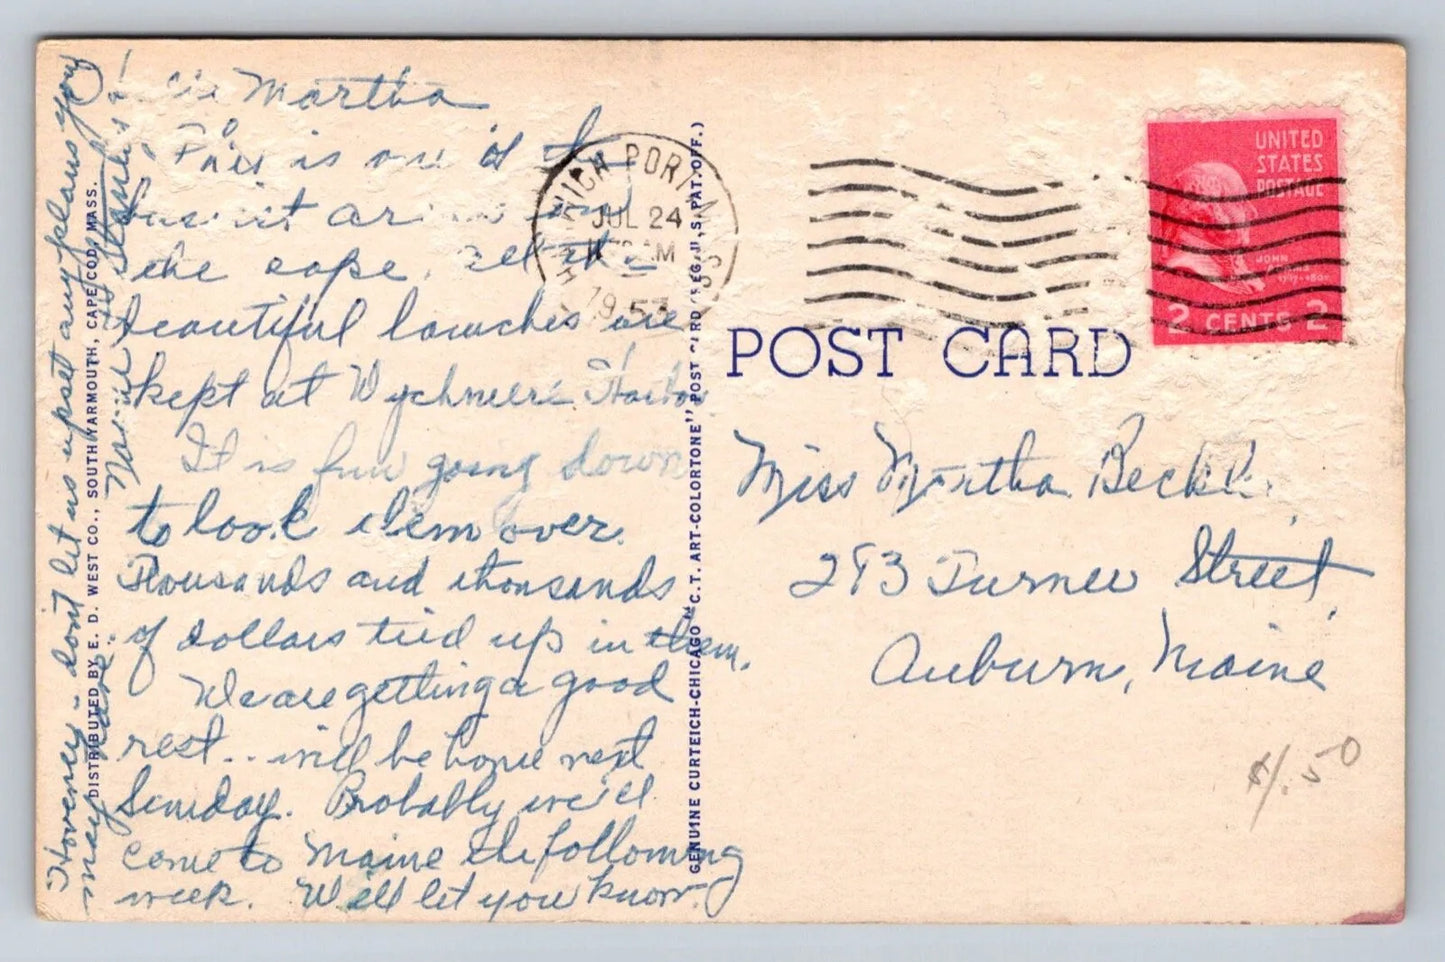 Martha
This is one of the
the cape. All the
beautiful launches are
kept at Wychmere Harbor
It is fun going down
to look them over.
Thousands and thousands
of dollars tied up in them.
We are getting a good
rest.. will be home next
Sunday. Probably we'll
come to Maine the following
week. We'll let you know.
However - don't let us upset any plans you
may have.
DISTRIBUTED BY E. D. WEST CO., SOUTH YARMOUTH, CAPE COD, MASS.
GENUINE CURTEICH-CHICAGO "C.T. ART-COLORTONE" POST CARD (REG. U.S. PAT. OFF.)
PORT
JUL 24
AM
1953
MASS
UNITED
STATES
POSTAGE
JOHN
ADAMS
2 CENTS 2
POST CARD
Miss Martha
293 Turner Street,
Auburn, Maine
$1.50